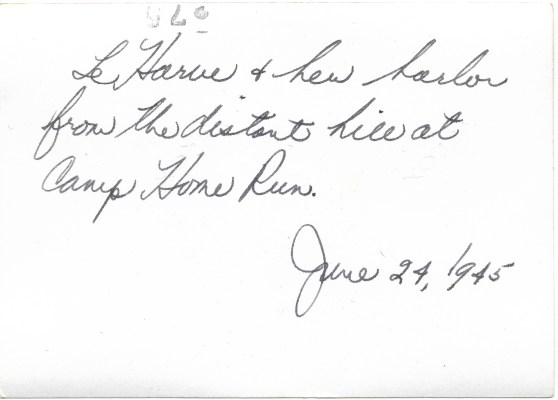 Le Harve & her harbor
from the distant hill at
Camp Home Run.
June 24, 1945